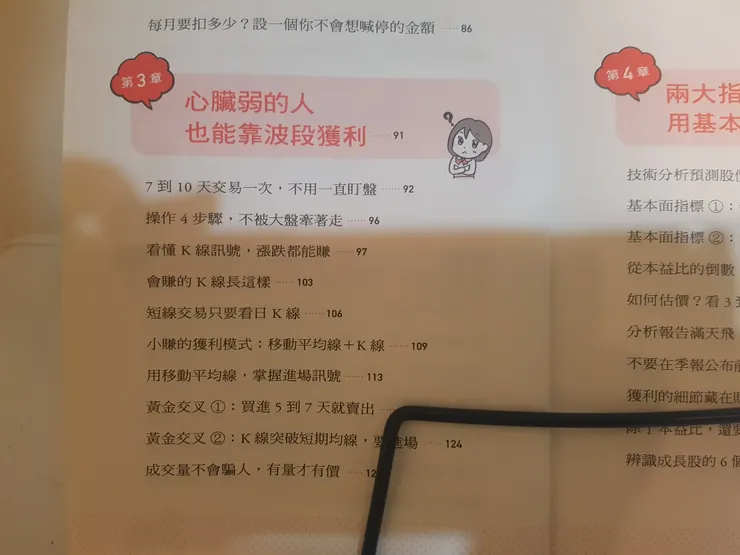 每月要扣多少？設一個你不會想喊停的金額……86
第3章
心臟弱的人
也能靠波段獲利……91
7到10天交易一次，不用一直盯盤……92
操作4步驟，不被大盤牽著走……96
看懂K線訊號，漲跌都能賺……97
會賺的K線長這樣……103
短線交易只要看日K線……106
小賺的獲利模式：移動平均線＋K線……109
用移動平均線，掌握進場訊號……113
黃金交叉①：買進5到7天就賣出
黃金交叉②：K線突破短期均線，要進場……124
成交量不會騙人，有量才有價……12
第4章
兩大指
用基本
技術分析預測股
基本面指標①：
基本面指標②：
從本益比的倒數
如何估價？看3
分析報告滿天飛
不要在季報公布
獲利的細節藏在
除了本益比，還
辨識成長股的6個